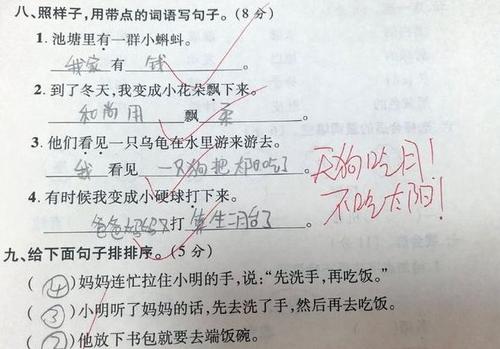 八、照样子,用带点的词语写句子。(8分)
1. 池塘里有一群小蝌蚪。
我家 有 钱 。
2. 到了冬天,我变成小花朵飘下来。
和尚用 飘柔 。
3. 他们看见一只乌龟在水里游来游去。
我 看见 一只狗把太阳吃了 。
天狗吃月!
4. 有时候我变成小硬球打下来。
不吃太阳!
爸爸妈妈 打 生二月台了 。
九、给下面句子排排序。(5分)
(④)妈妈连忙拉住小明的手,说:“先洗手,再吃饭。”
(③)小明听了妈妈的话,先去洗了手,然后再去吃饭。
(②)他放下书包就要去端饭碗。